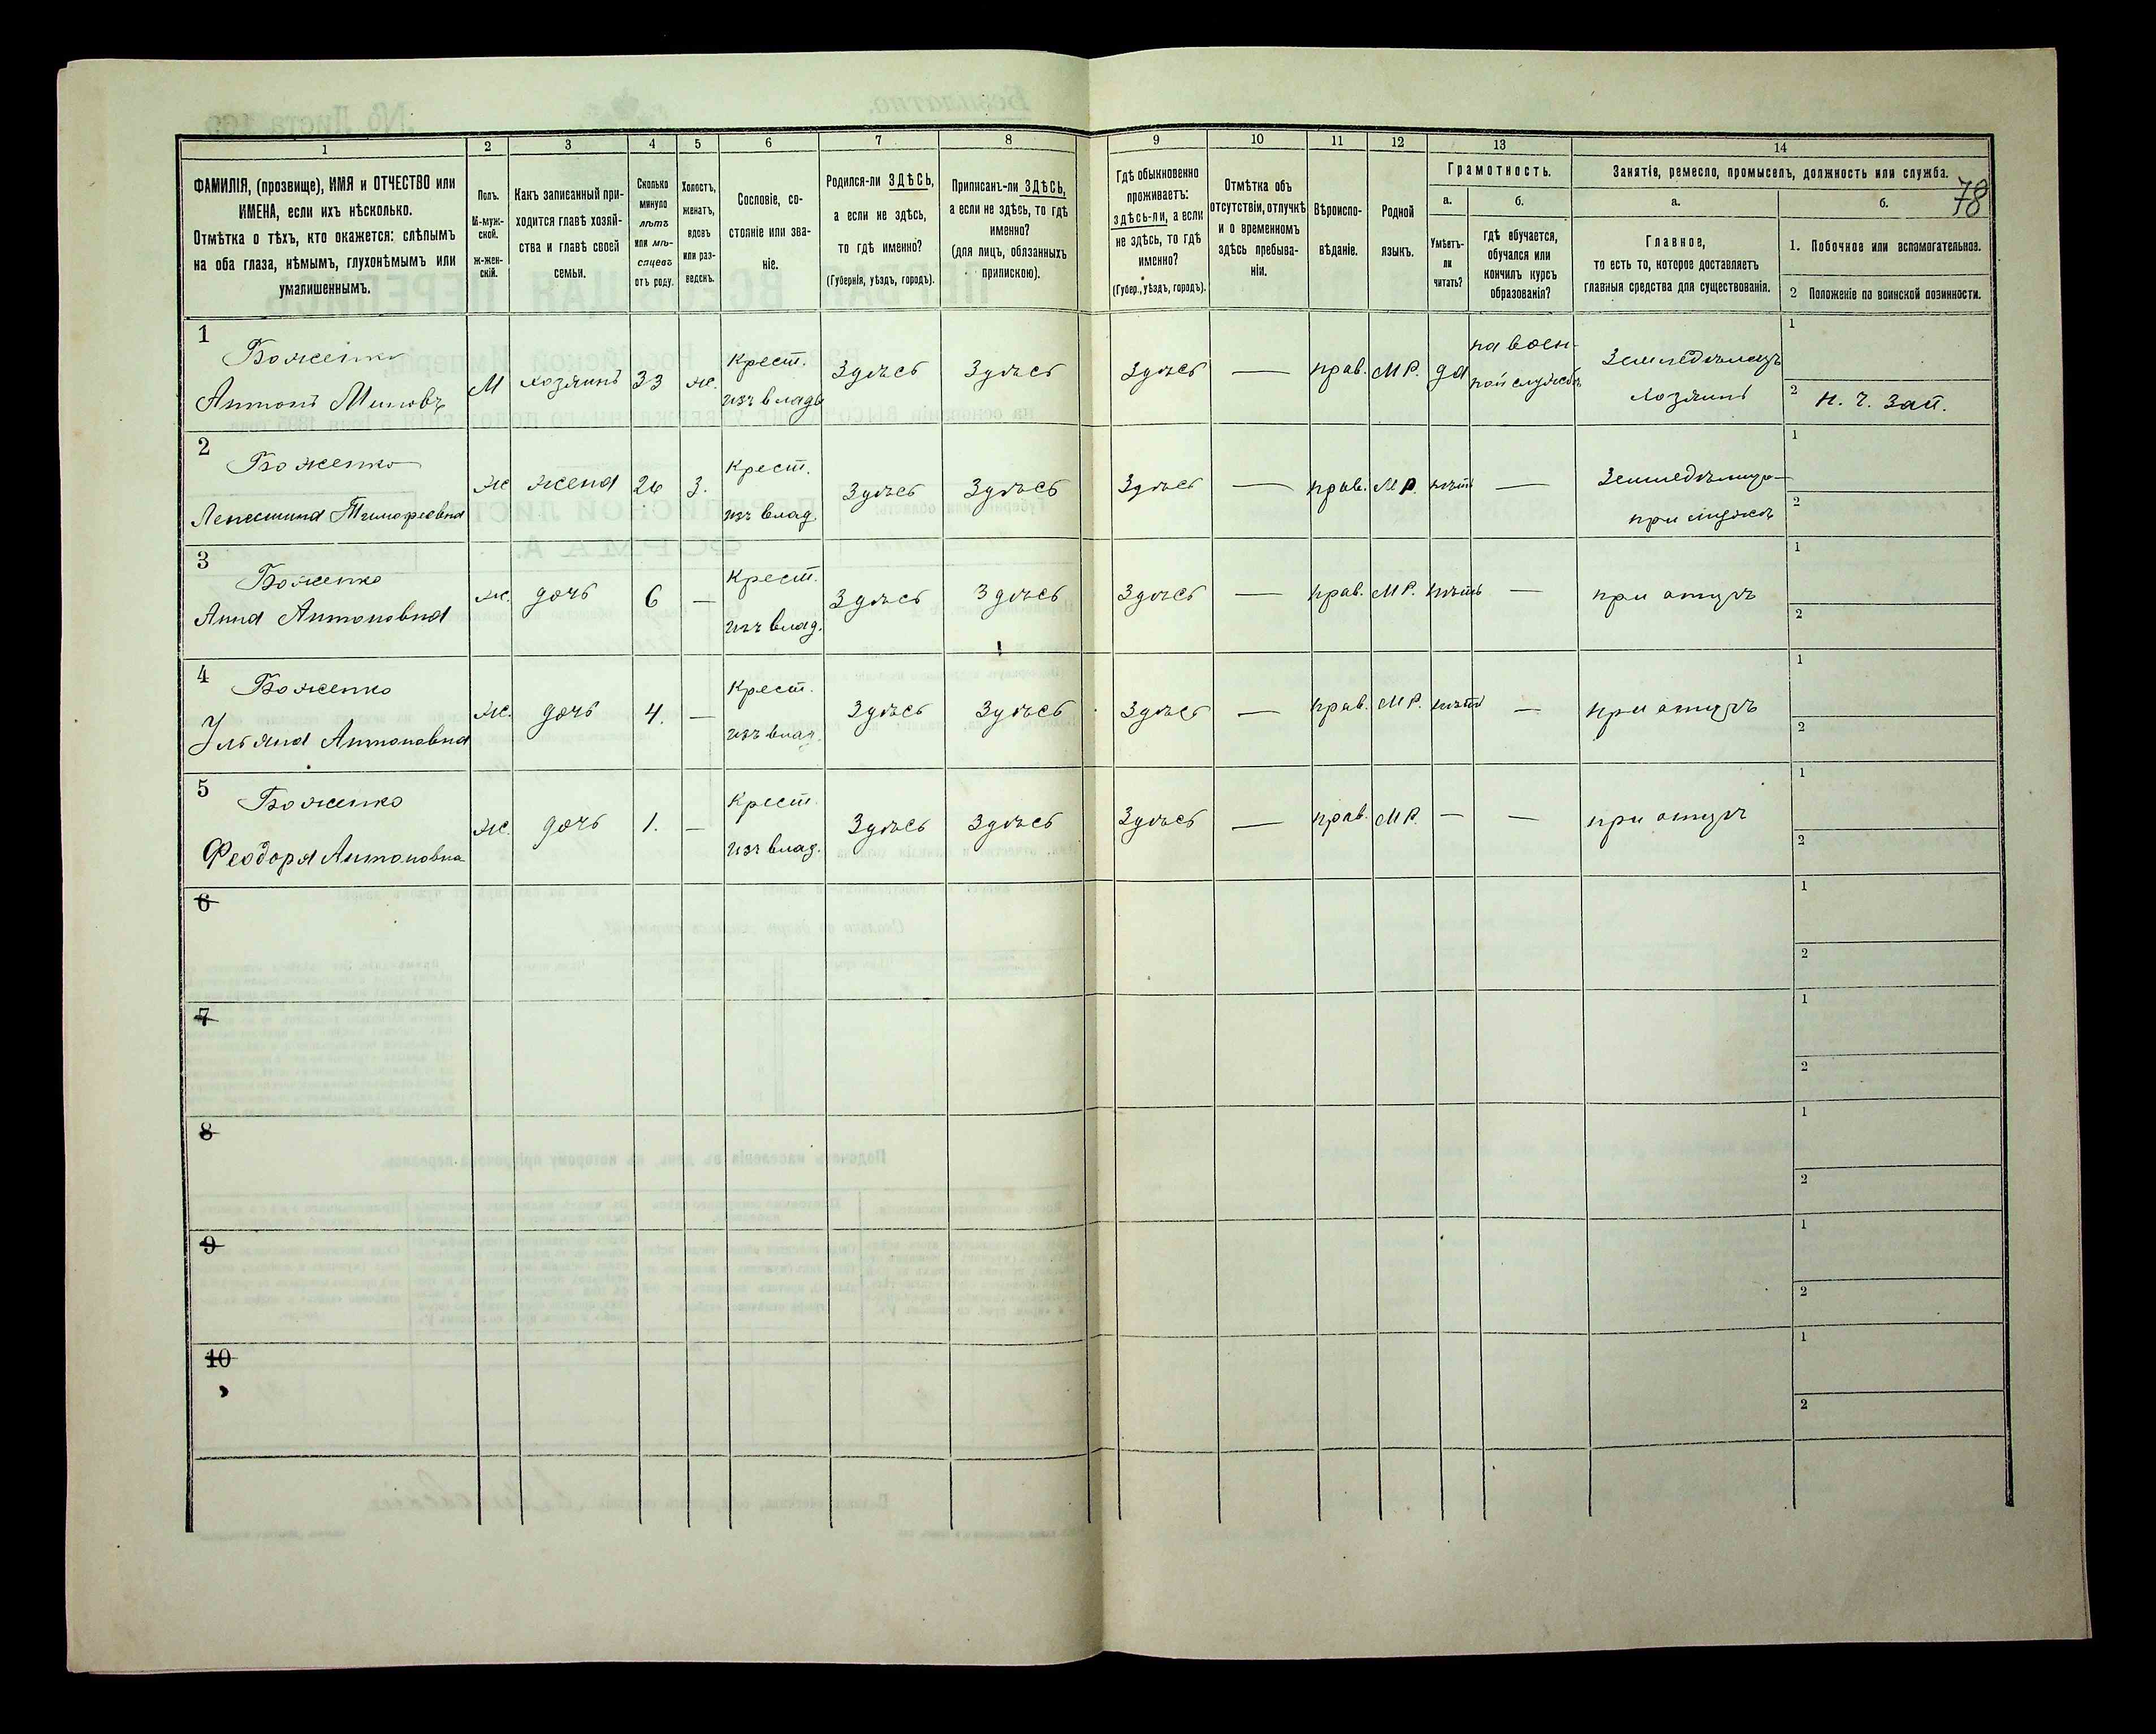 1 2 3 4 5 6 7 8 9 10 11 12 13 14
ФАМИЛІЯ, (прозвище), ИМЯ и ОТЧЕСТВО или
ИМЕНА, если ихъ нѣсколько.
Отмѣтка о тѣхъ, кто окажется: слѣпымъ
на оба глаза, нѣмымъ, глухонѣмымъ или
умалишеннымъ.
Полъ.
М-муж-
ской.
ж-жен-
скій.
Какъ записанный при-
ходится главѣ хозяй-
ства и главѣ своей
семьи.
Сколько
минуло
лѣтъ
или мѣ-
сяцевъ
отъ роду.
Холостъ,
женатъ,
вдовъ
или раз-
веденъ.
Сословіе, со-
стояніе или зва-
ніе.
Родился-ли ЗДѢСЬ,
а если не здѣсь,
то гдѣ именно?
(Губернія, уѣздъ, городъ).
Приписанъ-ли ЗДѢСЬ,
а если не здѣсь, то гдѣ
именно?
(для лицъ, обязанныхъ
припискою).
Гдѣ обыкновенно
проживаетъ:
здѣсь-ли, а если
не здѣсь, то гдѣ
именно?
(Губер., уѣздъ, городъ).
Отмѣтка объ
отсутствіи, отлучкѣ
и о временномъ
здѣсь пребыва-
ніи.
Вѣроиспо-
вѣданіе.
Родной
языкъ.
Грамотность.
а.
Умѣетъ-
ли
читать?
б.
Гдѣ обучается,
обучался или
кончилъ курсъ
образованія?
Занятіе, ремесло, промыселъ, должность или служба.
78
а.
Главное,
то есть то, которое доставляетъ
главныя средства для существованія.
б.
1. Побочное или вспомогательное.
2 Положеніе по воинской повинности.
1 Боженко Крест. на воен- 1
Антонъ М хозяинъ 33 ж. изъ влад. Здѣсь Здѣсь Здѣсь — прав. М Р. да ной службѣ Земледѣлецъ
хозяинъ 2 н. ч. зап.
2 Боженко Крест. 1
Тимофеевна Ж жена 26 З. изъ влад. Здѣсь Здѣсь Здѣсь — прав. М Р. нѣтъ — Земледѣлица
при мужѣ 2
3 Боженко Крест. 1
Анна Антоновна ж. дочь 6 — изъ влад. Здѣсь Здѣсь Здѣсь — прав. М Р. нѣтъ — при отцѣ 2
4 Боженко Крест. 1
Ульяна Антоновна ж. дочь 4. — изъ влад. Здѣсь Здѣсь Здѣсь — прав. М Р. нѣтъ — при отцѣ 2
5 Боженко Крест. 1
Феодора Антоновна ж. дочь 1. — изъ влад. Здѣсь Здѣсь Здѣсь — прав. М Р. — — при отцѣ 2
6 1
2
7 1
2
8 1
2
9 1
2
10 1
2